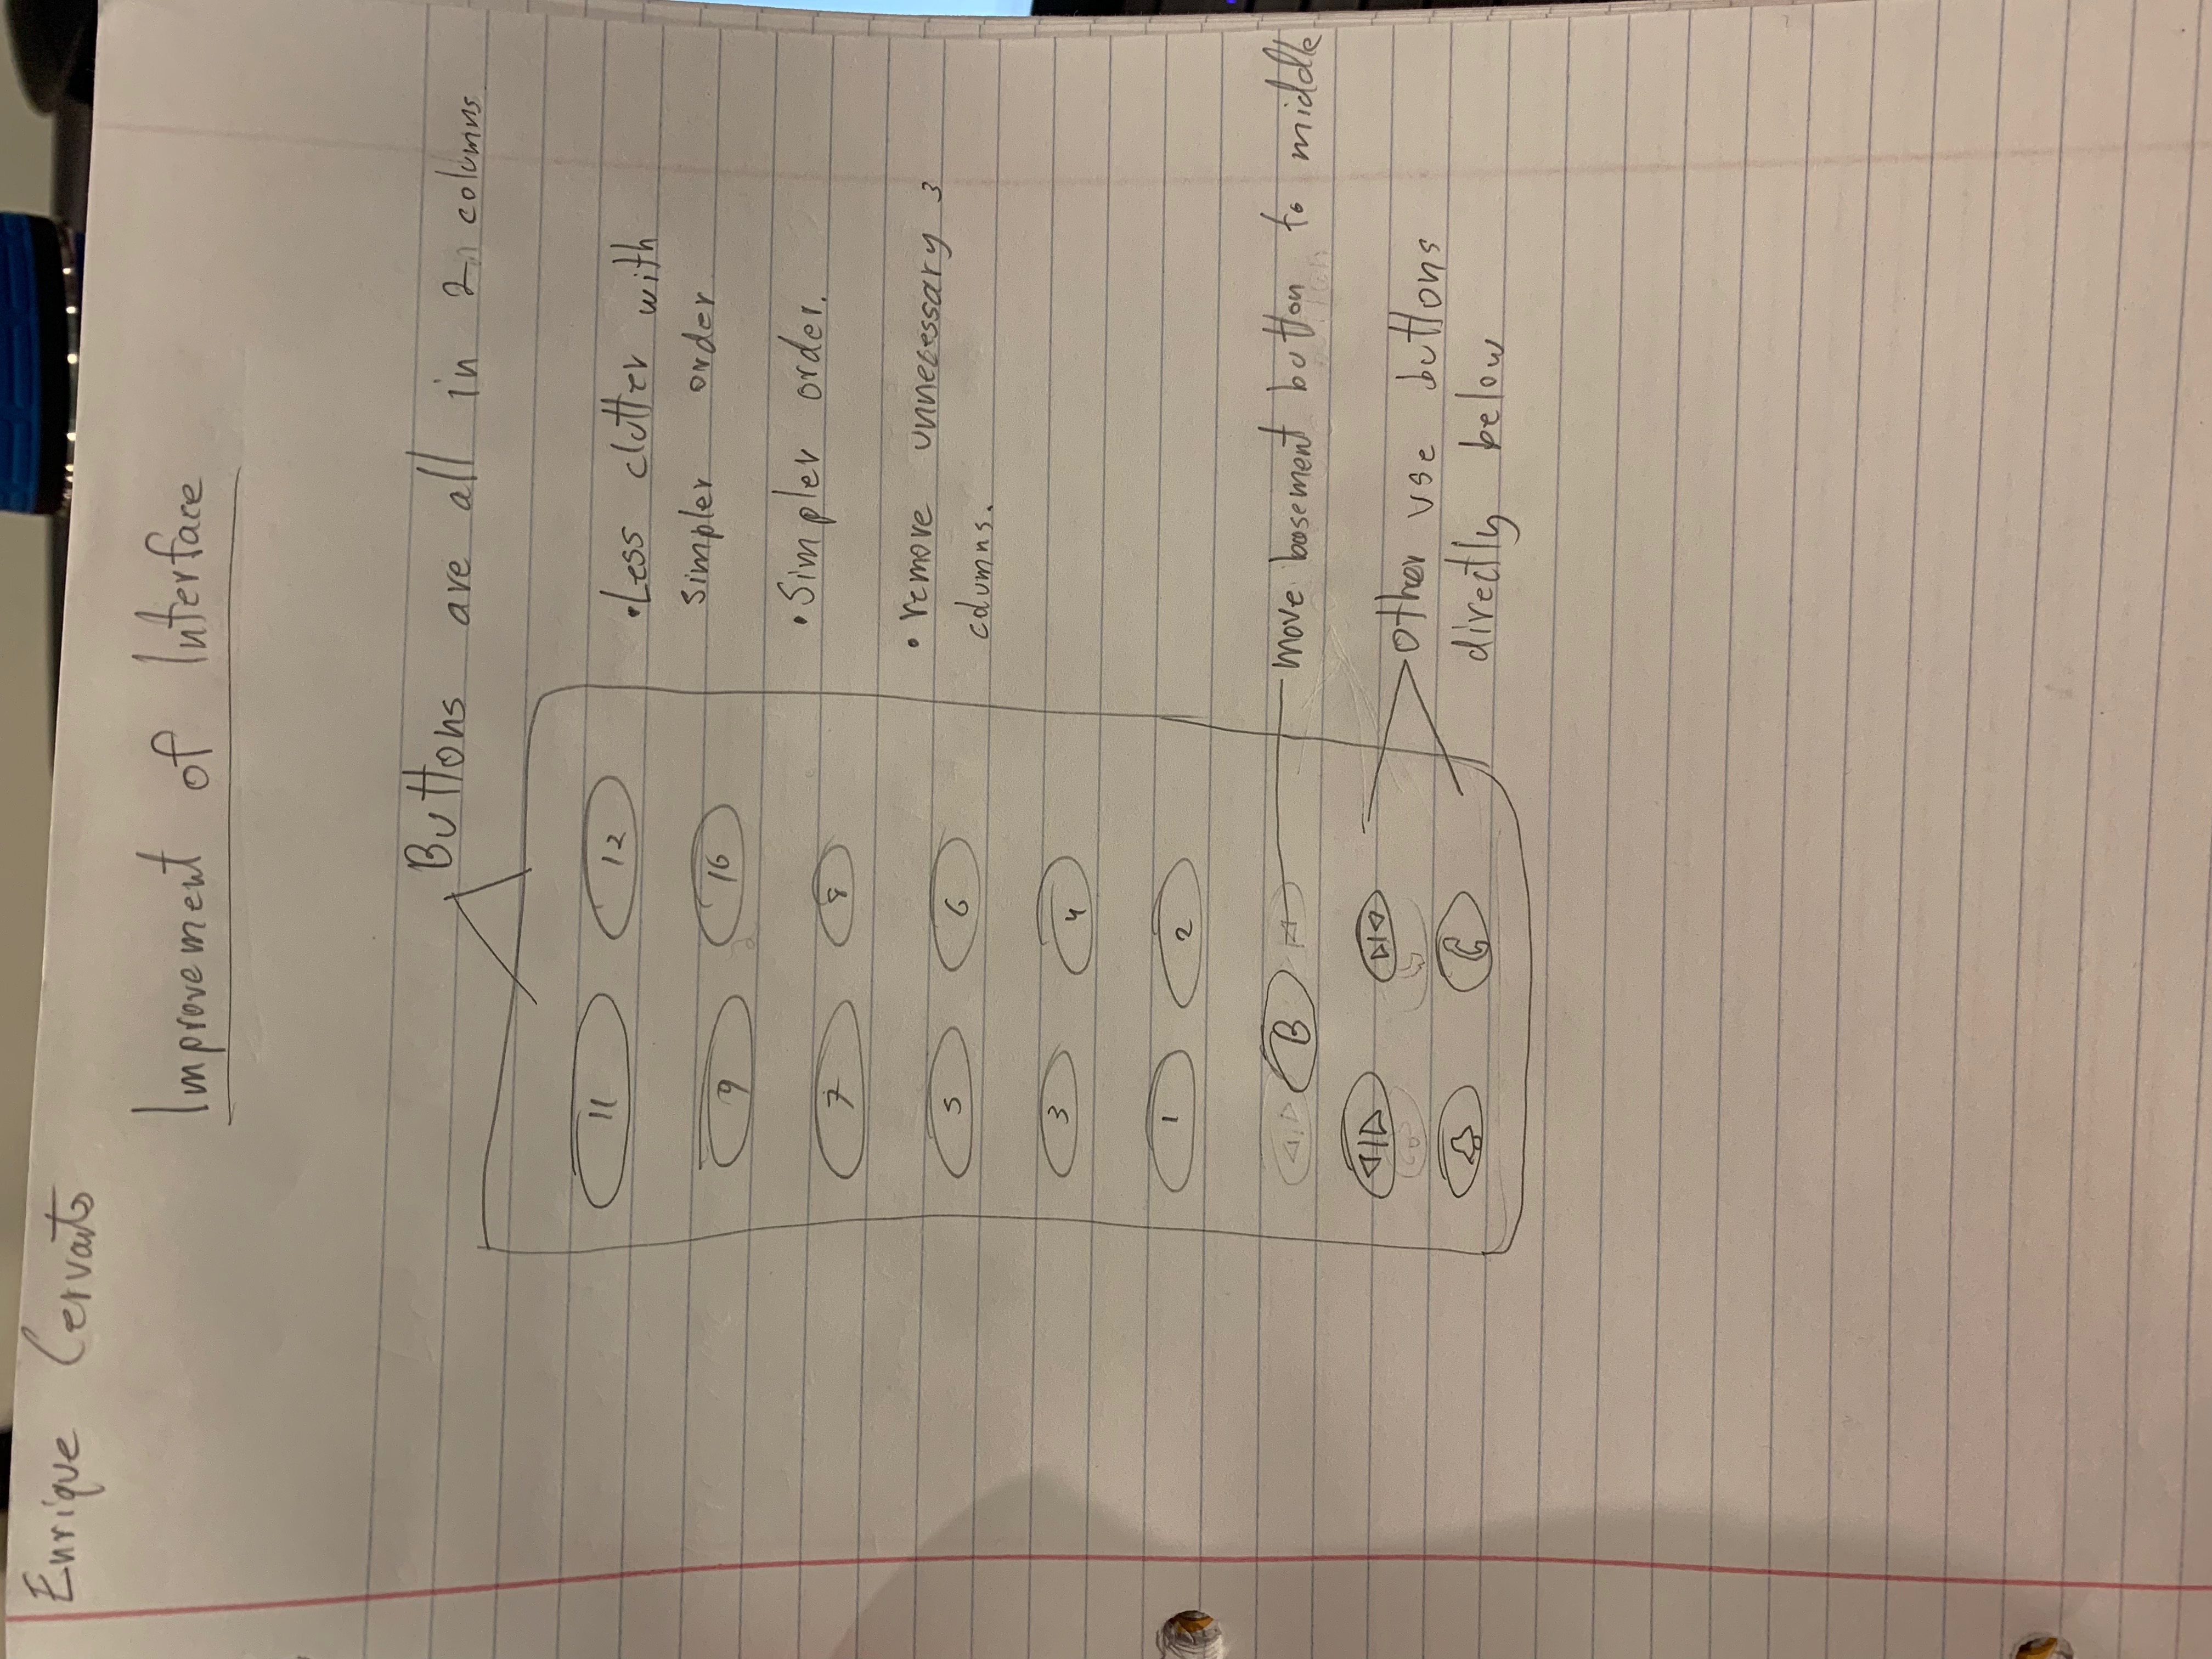 Enrique
Improvement of Interface
Buttons are all in 2 columns.
11 12
•Less clutter with
simpler order
9 16
•Simpler order.
7 8
•remove unnecessary 3
columns.
5 6
3 4
1 2
B
move basement button to middle
other use buttons
directly below